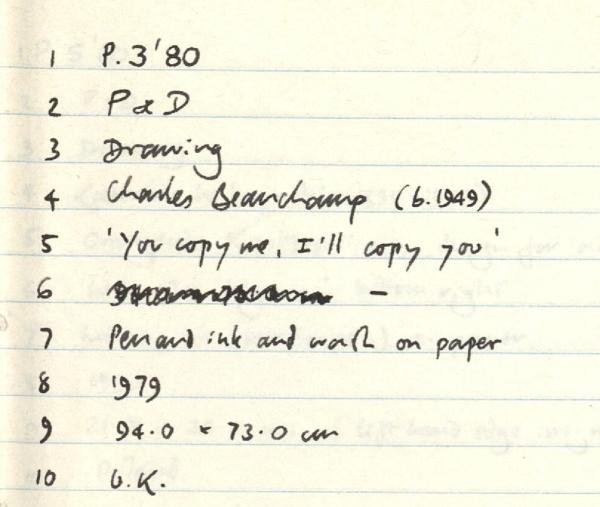 1 P.3'80
2 P & D
3 Drawing
4 Charles Beauchamp (b.1949)
5 'You copy me, I'll copy you'
6 –
7 Pen and ink and wash on paper
8 1979
9 94.0 × 73.0 cm
10 U.K.